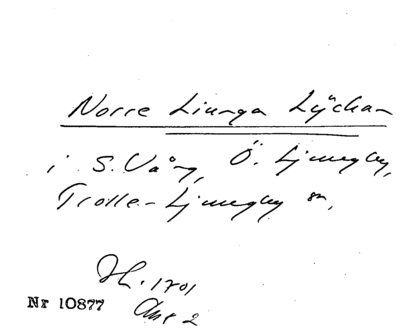 Norre Liunga Lÿckan
i S. Vång, Ö. Ljungby,
Trolle-Ljungby sn,
Jb. 1701
Nr 10877